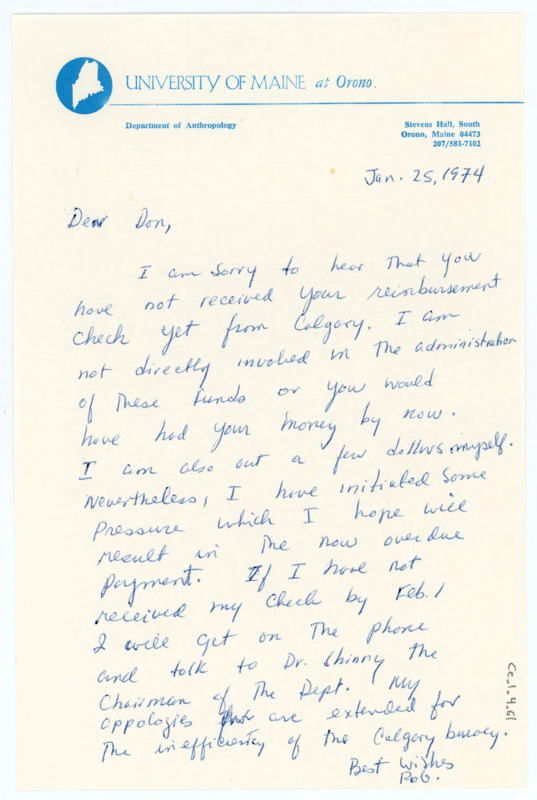 UNIVERSITY OF MAINE at Orono.
Department of Anthropology
Stevens Hall, South
Orono, Maine 04473
207/581-7102
Jan. 25, 1974
Dear Don,
I am sorry to hear that you
have not received your reimbursement
check yet from Calgary. I am
not directly involved in the administration
of these funds or you would
have had your money by now.
I am also out a few dollars myself.
Nevertheless, I have initiated some
pressure which I hope will
result in the now overdue
payment. If I have not
received my check by Feb. 1
I will get on the phone
and talk to Dr. Shinny the
Chairman of the Dept. My
appologies are extended for
the inefficiency of the Calgary burocy.
Best Wishes
Rob.
Ce.1.9.51